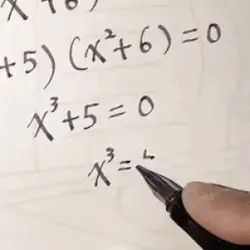 +5) (x²+6) = 0
x³+5 = 0
x³ =